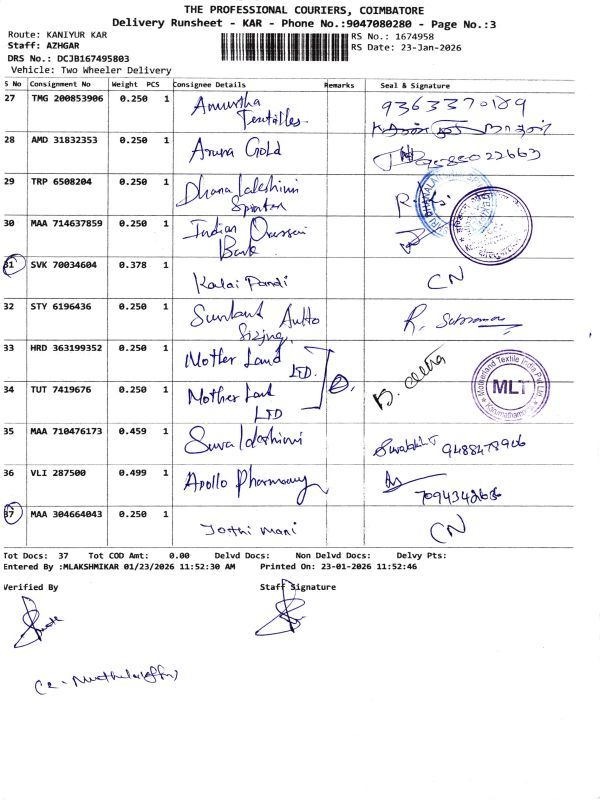 THE PROFESSIONAL COURIERS, COIMBATORE
Delivery Runsheet - KAR - Phone No.:9047080280 - Page No.:3
Route: KANIYUR KAR
RS No.: 1674958
Staff: AZHGAR
RS Date: 23-Jan-2026
DRS No.: DCJB167495803
Vehicle: Two Wheeler Delivery
S No Consignment No Weight PCS Consignee Details Remarks Seal & Signature
27 TMG 200853906 0.250 1 9363370189
28 AMD 31832353 0.250 1 Aruna Gold
29 TRP 6508204 0.250 1 Dhana Lakshimi
30 MAA 714637859 0.250 1 Indian
Bank
31 SVK 70034604 0.378 1 Kalai Pandi CN
32 STY 6196436 0.250 1 Autto
Sizing
33 HRD 363199352 0.250 1 Mother Land
LTD.
34 TUT 7419676 0.250 1 Mother Land
LTD
B. Geetha
Motherland Textile India Pvt Ltd
MLT
35 MAA 710476173 0.459 1
36 VLI 287500 0.499 1 Apollo Pharmacy
7094342636
37 MAA 304664043 0.250 1 Jothi mani CN
Tot Docs: 37 Tot COD Amt: 0.00 Delvd Docs: Non Delvd Docs: Delvy Pts:
Entered By :MLAKSHMIKAR 01/23/2026 11:52:30 AM Printed On: 23-01-2026 11:52:46
Verified By Staff Signature